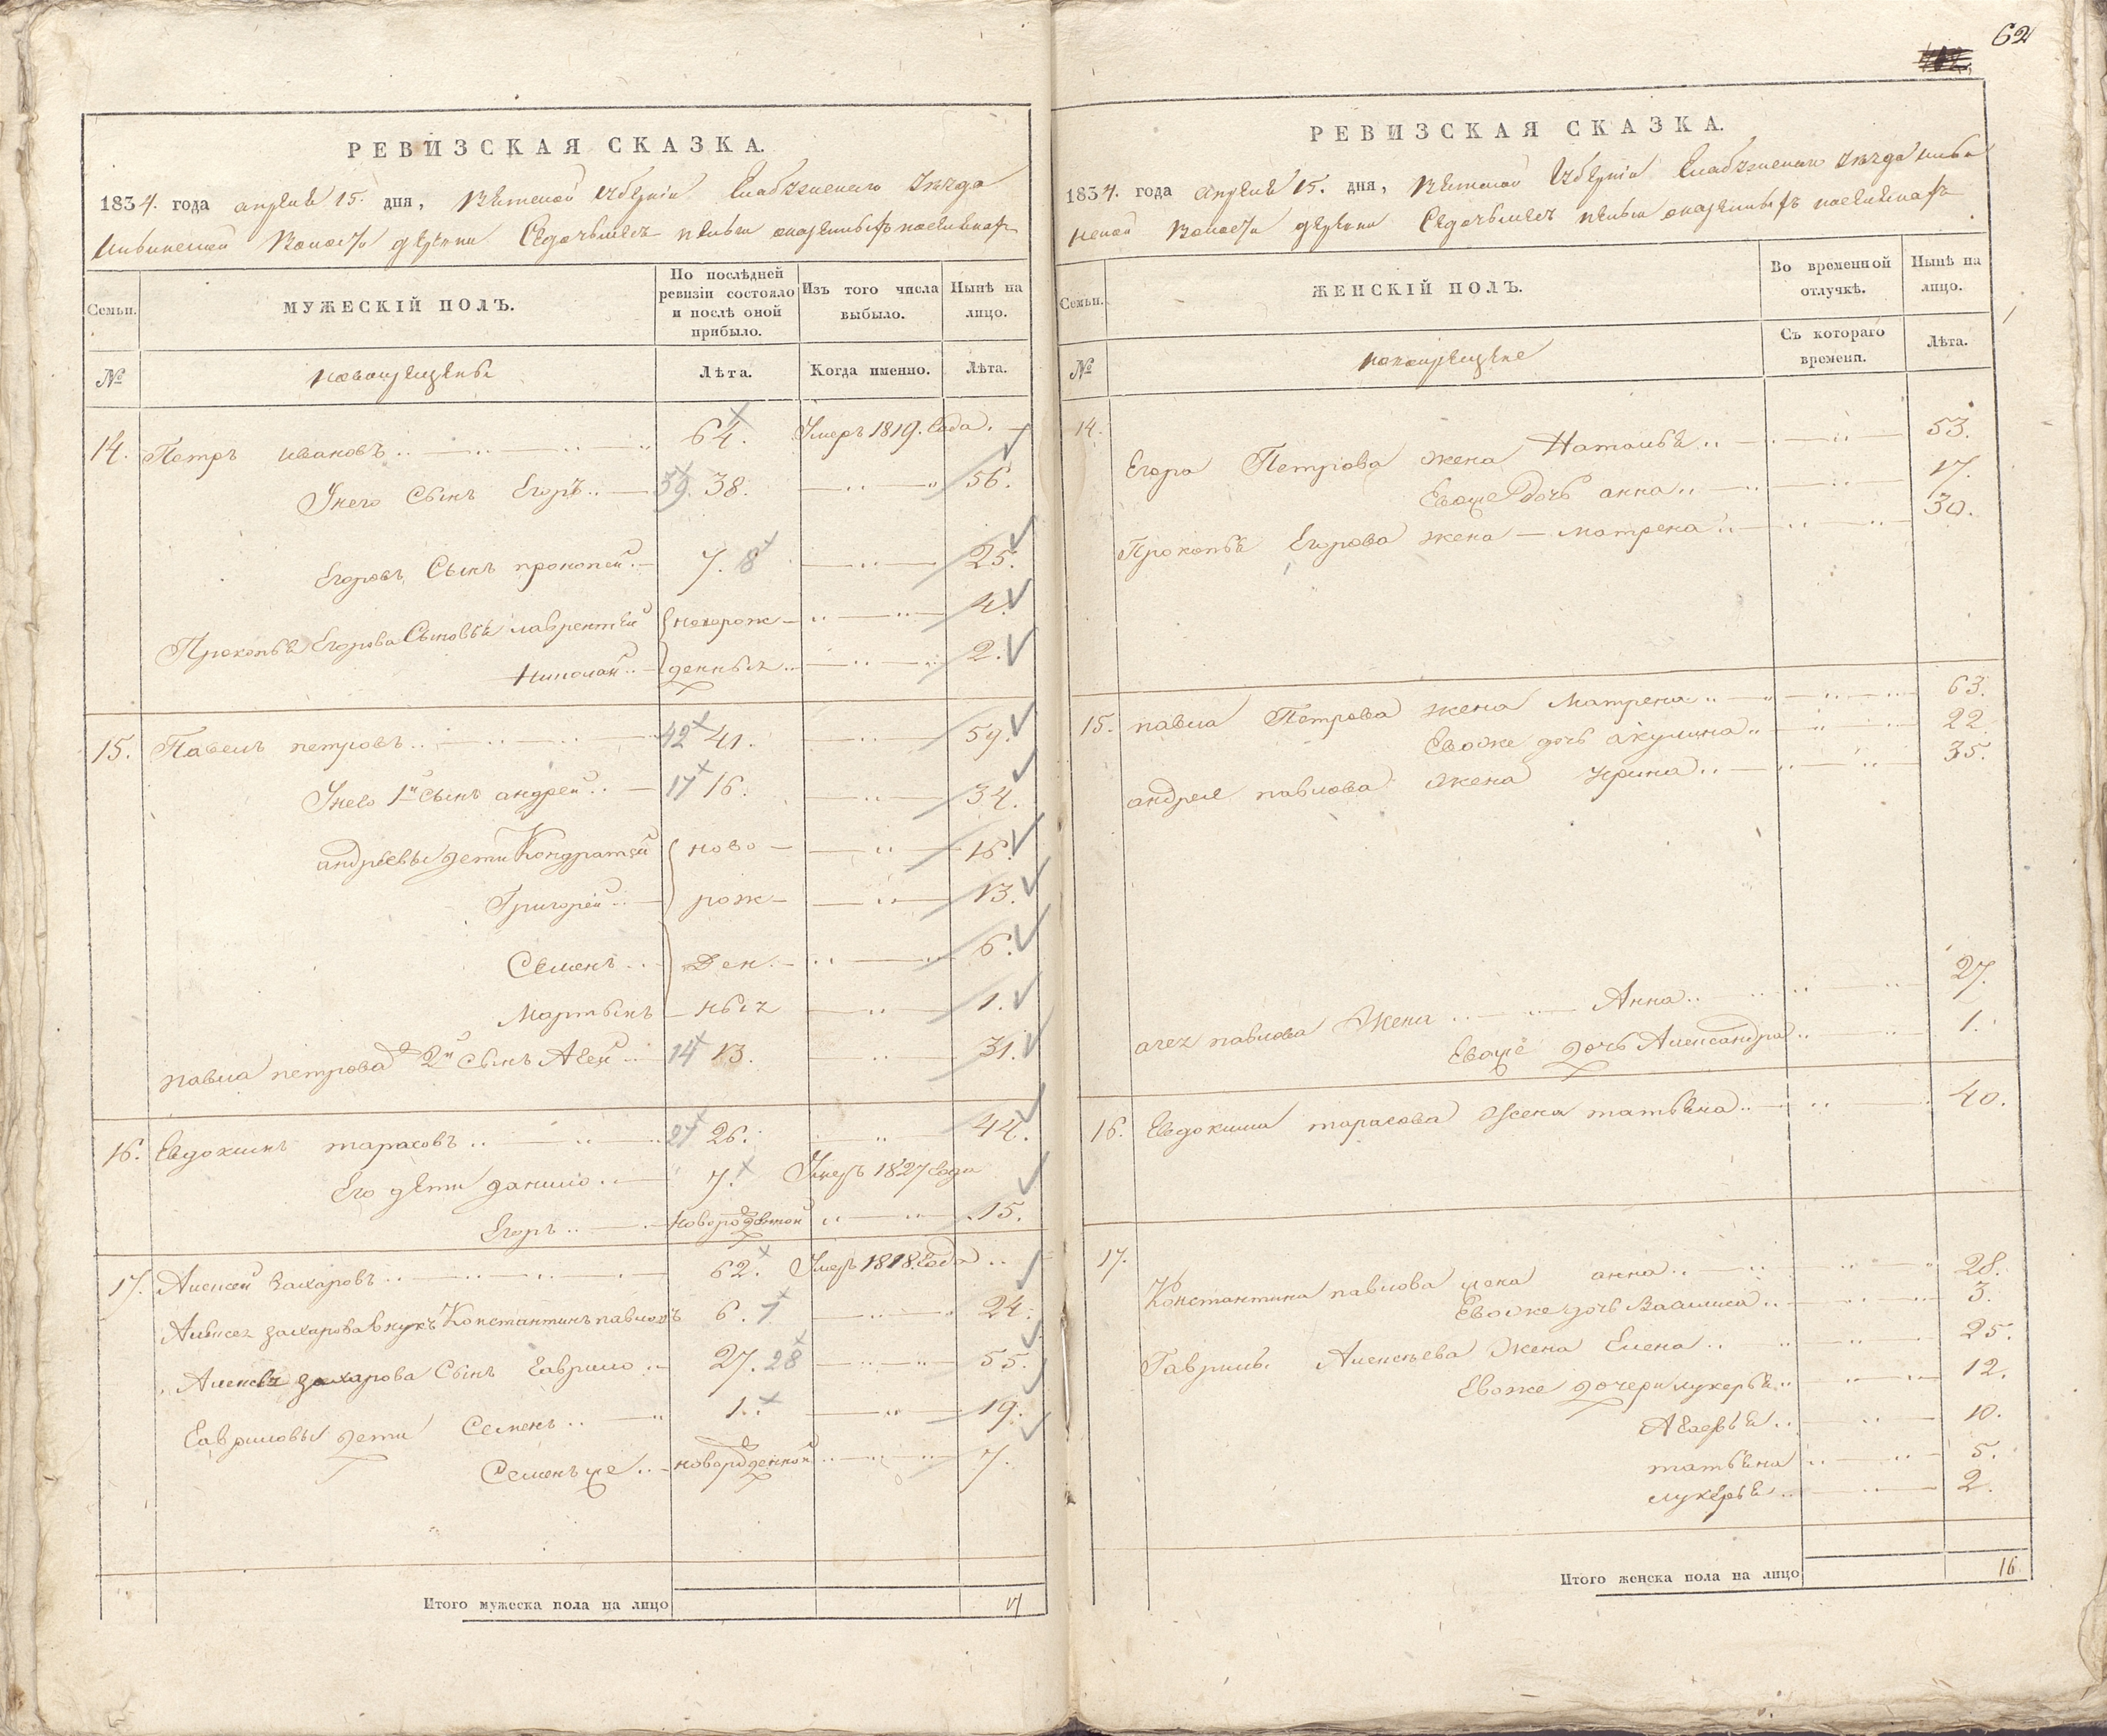 РЕВИЗСКАЯ СКАЗКА.
1834. года апреля 15. дня, Вятской Губернии Елабужскаго Уезда
волости деревни
Семьи. МУЖЕСКІЙ ПОЛЪ. По послѣдней ревизіи состояло и послѣ оной прибыло. Изъ того числа выбыло. Нынѣ на лицо.
№ новокрещены Лѣта. Когда именно. Лѣта.
14. Петръ ивановъ 64. Умеръ 1819. Года.
Унего Сынъ Егоръ 39. 38. 56.
Егоровъ Сынъ прокопей 7. 8 25.
Прокопья Егорова Сыновья лаврентей новорож- 4.
Николай денныя 2.
15. Павелъ петровъ 42 41. 59.
Унего 1й Сынъ андрей 17 16. 34.
андреевы дети Кондратей ново- 16.
Григорей рож- 13.
Семенъ ден- 6.
Мартынъ ныя 1.
павла петрова 2й Сынъ Агей 14 13. 31.
16. Евдокимъ тарасовъ 27 26. 44.
Его дети данило 7. Умеръ 1827 Года
Егоръ 15.
17. Алексей Захаровъ 62. Умеръ 1818. Года
захарова внукъ Константинъ павловъ 6. 7 24.
захарова Сынъ Гаврило 27. 28 55.
Гавриловы дети Семенъ 1. 19.
Семенъ же новорожденной 7.
Итого мужеска пола на лицо
62
РЕВИЗСКАЯ СКАЗКА.
1834. года апреля 15. дня, Вятской Губернии Елабужскаго Уезда
волости деревни
Семьи. ЖЕНСКІЙ ПОЛЪ. Во временной отлучкѣ. Нынѣ на лицо.
№ новокрещене Съ котораго времени. Лѣта.
14. Егора Петрова жена Наталья 53.
Евоже дочь анна 17.
Прокопья Егорова жена матрена 30.
15. павла Петрова жена Матрена 63.
Евоже дочь акулина 22.
андрея павлова жена Ирина 35.
агея павлова Жена Анна 27.
Евоже дочь Александра 1.
16. Евдокима тарасова Жена татьяна 40.
17. Константина павлова жена анна 28.
Евоже дочь Василиса 3.
Гаврилы Алексеева Жена Елена 25.
Евоже дочери лукерья 12.
10.
татьяна 5.
лукерья 2.
Итого женска пола на лицо 16